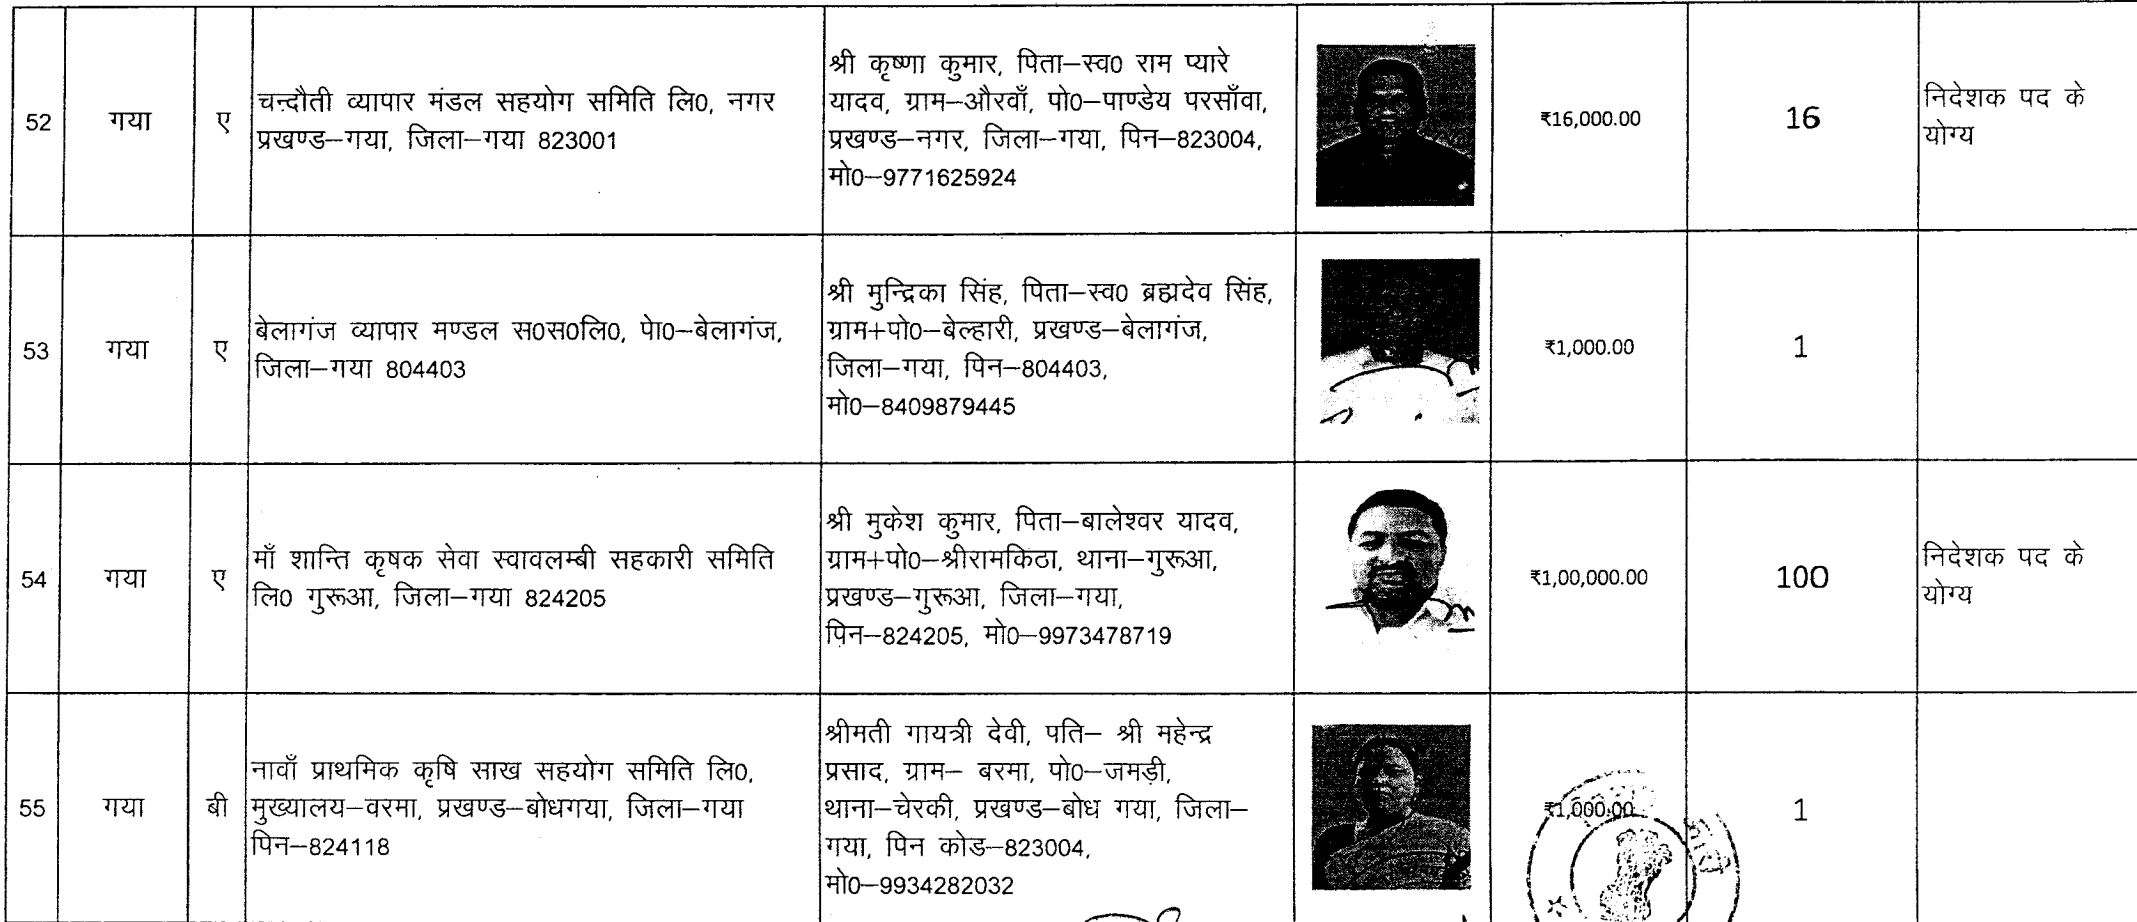 52
गया
ए
चन्दौती व्यापार मंडल सहयोग समिति लि0, नगर
प्रखण्ड–गया, जिला–गया 823001
श्री कृष्णा कुमार, पिता–स्व0 राम प्यारे
यादव, ग्राम–औरवाँ, पो0–पाण्डेय परसाँवा,
प्रखण्ड–नगर, जिला–गया, पिन–823004,
मो0–9771625924
₹16,000.00
16
निदेशक पद के
योग्य
53
गया
ए
बेलागंज व्यापार मण्डल स0स0लि0, पेा0–बेलागंज,
जिला–गया 804403
श्री मुन्द्रिका सिंह, पिता–स्व0 ब्रह्मदेव सिंह,
ग्राम+पो0–बेल्हारी, प्रखण्ड–बेलागंज,
जिला–गया, पिन–804403,
मो0–8409879445
₹1,000.00
1
54
गया
ए
माँ शान्ति कृषक सेवा स्वावलम्बी सहकारी समिति
लि0 गुरूआ, जिला–गया 824205
श्री मुकेश कुमार, पिता–बालेश्वर यादव,
ग्राम+पो0–श्रीरामकिठा, थाना–गुरूआ,
प्रखण्ड–गुरूआ, जिला–गया,
पिन–824205, मो0–9973478719
₹1,00,000.00
100
निदेशक पद के
योग्य
55
गया
बी
नावाँ प्राथमिक कृषि साख सहयोग समिति लि0,
मुख्यालय–वरमा, प्रखण्ड–बोधगया, जिला–गया
पिन–824118
श्रीमती गायत्री देवी, पति– श्री महेन्द्र
प्रसाद, ग्राम– बरमा, पो0–जमड़ी,
थाना–चेरकी, प्रखण्ड–बोध गया, जिला–
गया, पिन कोड–823004,
मो0–9934282032
₹1,000.00
1